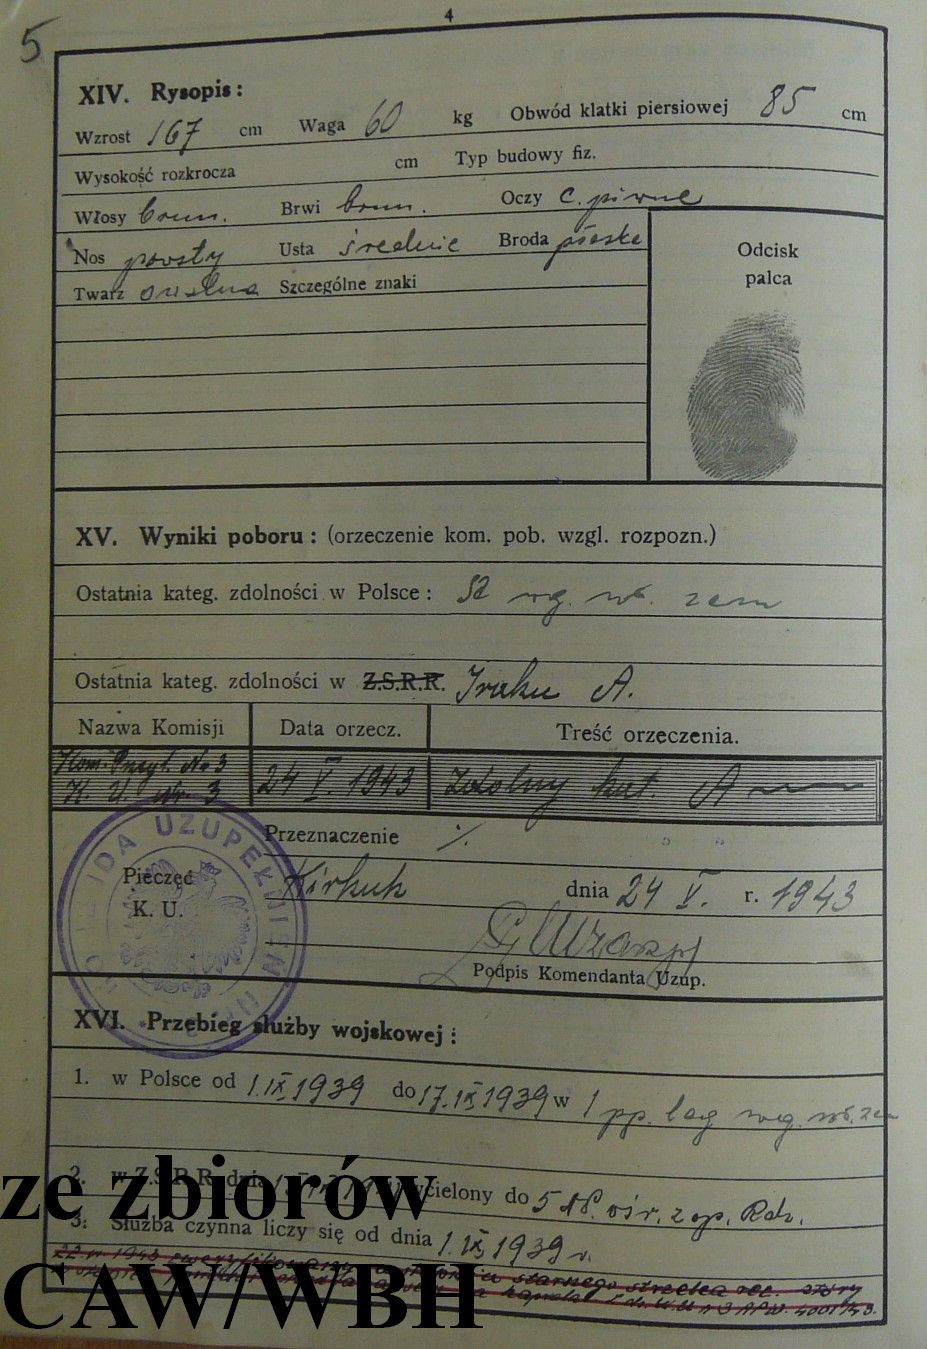 4
5
XIV. Rysopis:
Wzrost 167 cm Waga 60 kg Obwód klatki piersiowej 85 cm
Wysokość rozkrocza cm Typ budowy fiz.
Włosy brun. Brwi brun. Oczy c. piwne
Nos prosty Usta średnie Broda płaska
Twarz owalna Szczególne znaki
Odcisk
palca
XV. Wyniki poboru: (orzeczenie kom. pob. wzgl. rozpozn.)
Ostatnia kateg. zdolności w Polsce: wg. wł. zezn
Ostatnia kateg. zdolności w Z.S.R.R. Iraku A.
Nazwa Komisji Data orzecz. Treść orzeczenia.
Kom. Przegl. No 3
K. U. Nr. 3 24 V. 1943 Zdolny kat. A
Przeznaczenie %
Pieczęć
K. U.
KOMENDA UZUPEŁNIEŃ Nr 3
Kirkuk dnia 24 V. r. 1943
Podpis Komendanta Uzup.
XVI. Przebieg służby wojskowej:
1. w Polsce od 1.IX 1939 do 17.IX 1939 w 1 pp. leg wg. wł. zezn
2. w Z.S.R.R. dnia wcielony do 5
3. Służba czynna liczy się od dnia 1.IX 1939 r.
ze zbiorów
CAW/WBH